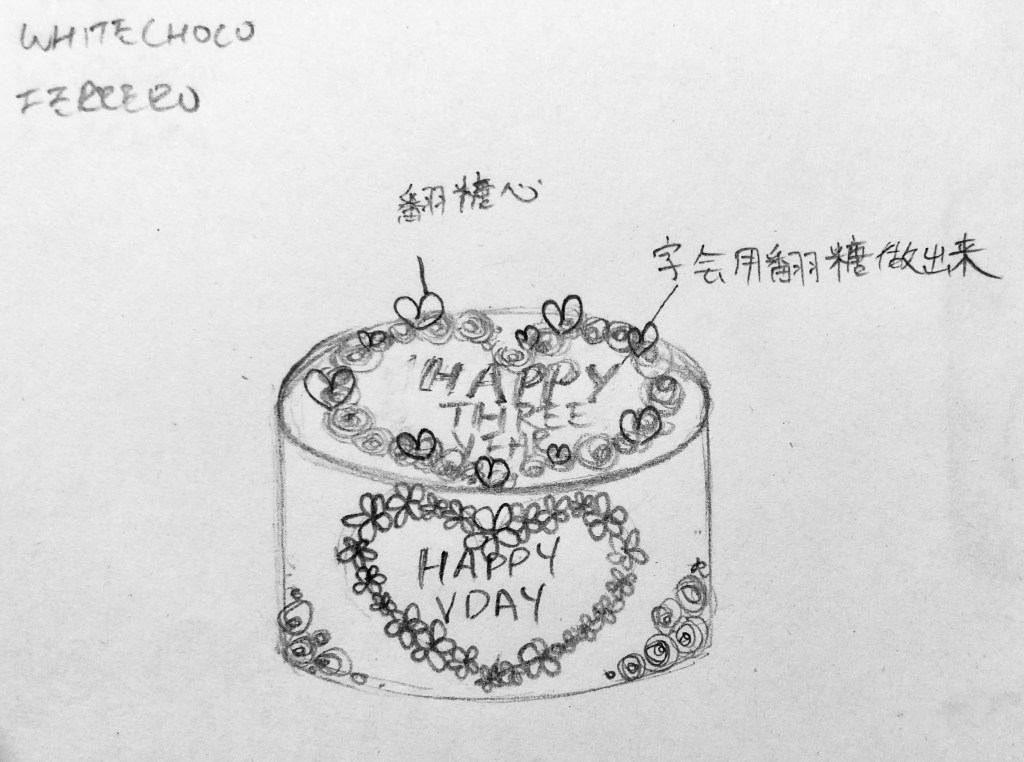 WHITECHOCO
FERRERO
翻糖心
字会用翻糖做出来
HAPPY
THREE
YEAR
HAPPY
VDAY